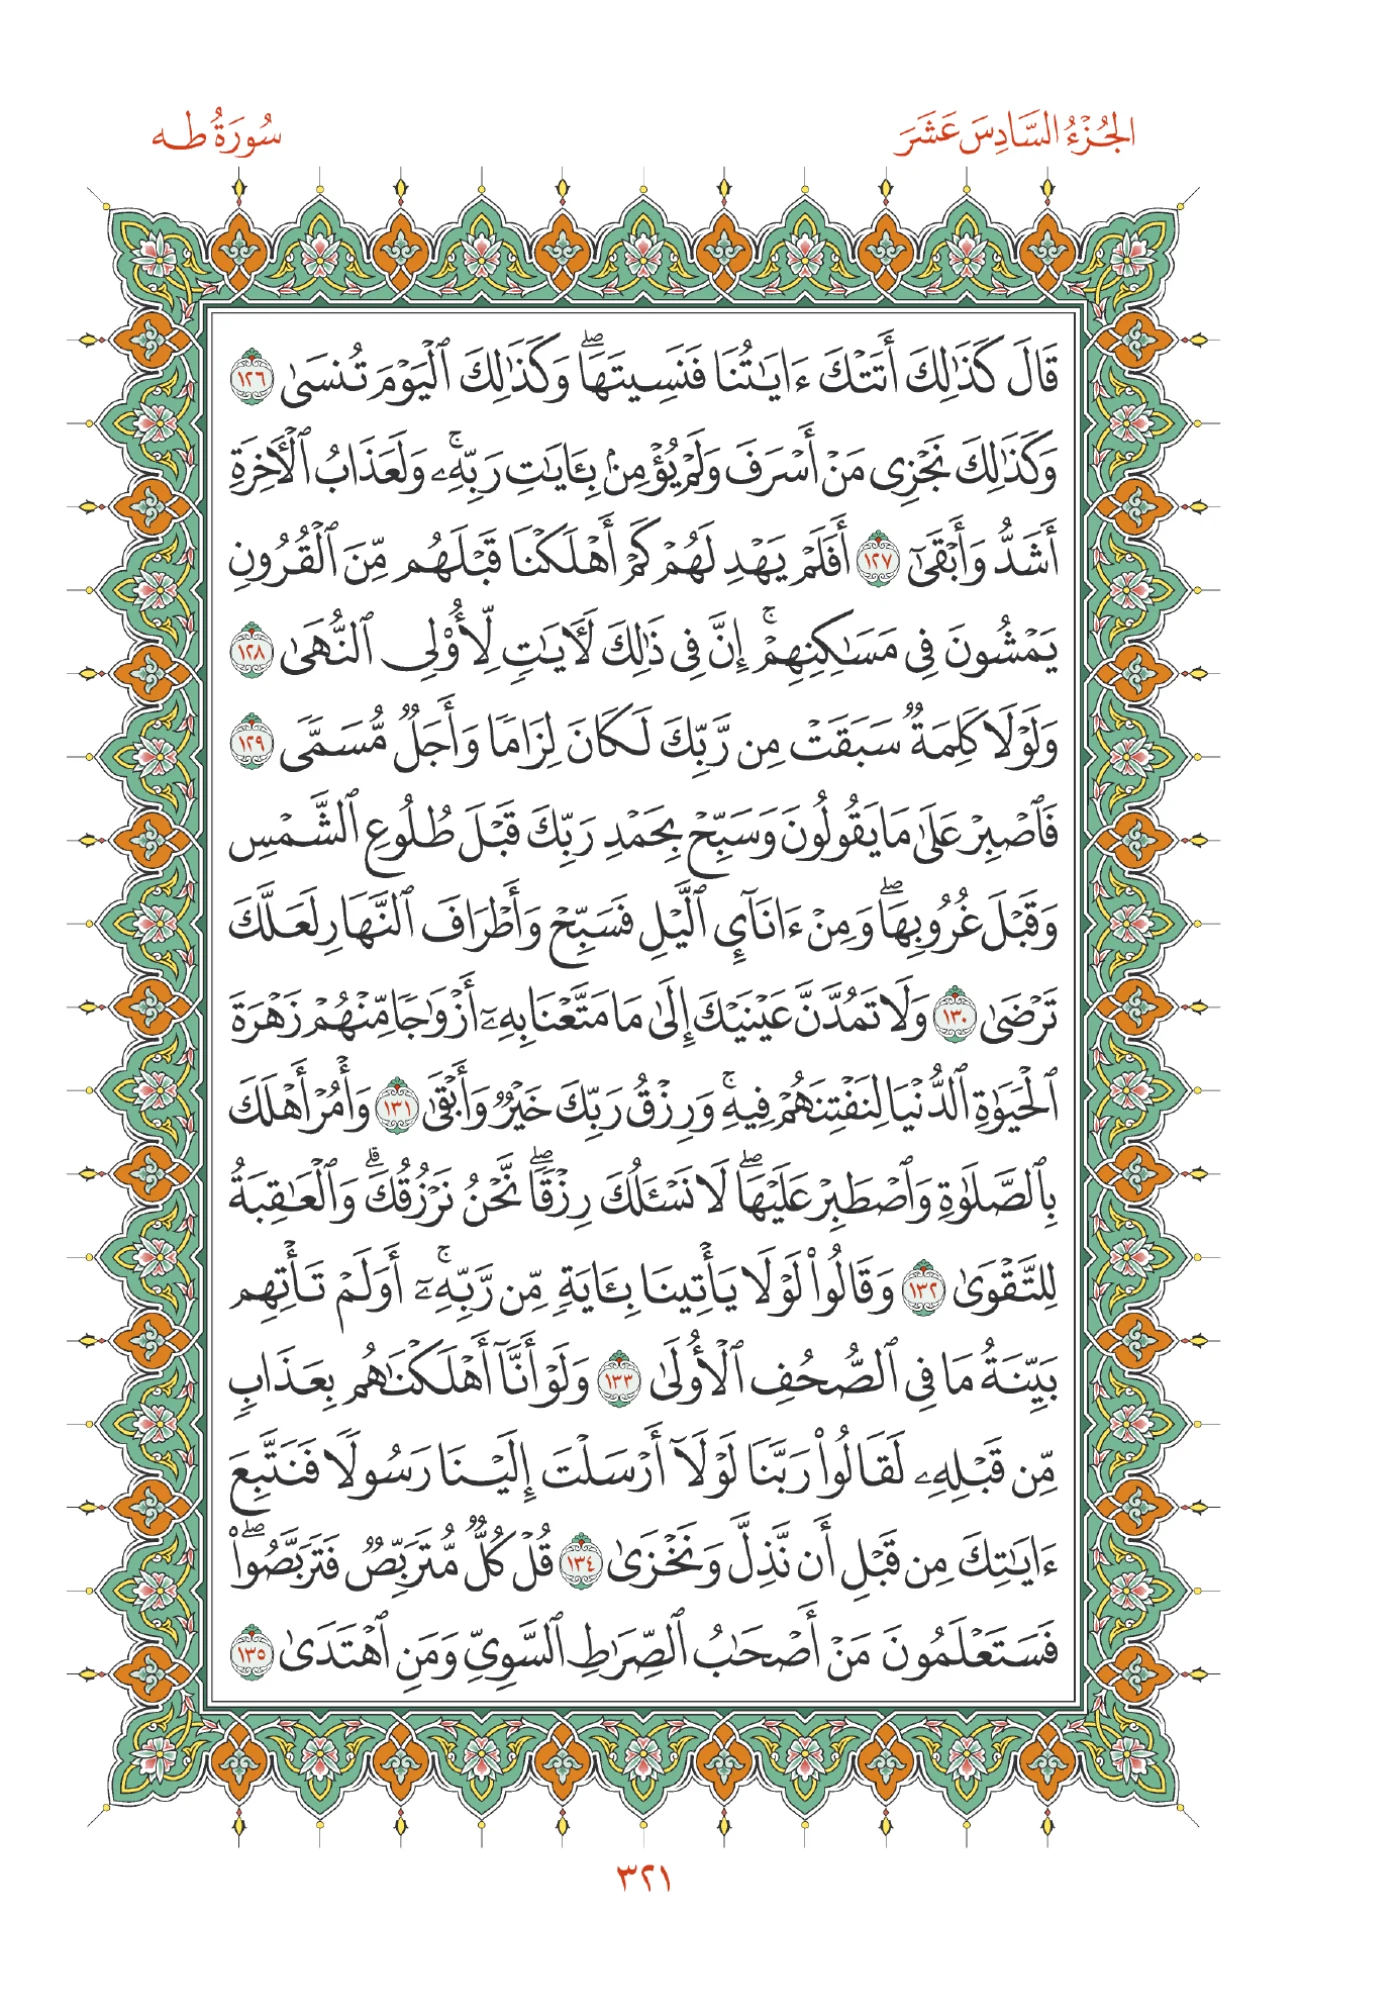 الجُزْءُ السَّادِسَ عَشَرَ
سُورَةُ طه
قَالَ كَذَٰلِكَ أَتَتْكَ ءَايَـٰتُنَا فَنَسِيتَهَا ۖ وَكَذَٰلِكَ ٱلْيَوْمَ تُنسَىٰ ١٢٦
وَكَذَٰلِكَ نَجْزِى مَنْ أَسْرَفَ وَلَمْ يُؤْمِنۢ بِـَٔايَـٰتِ رَبِّهِۦ ۚ وَلَعَذَابُ ٱلْـَٔاخِرَةِ
أَشَدُّ وَأَبْقَىٰٓ ١٢٧ أَفَلَمْ يَهْدِ لَهُمْ كَمْ أَهْلَكْنَا قَبْلَهُم مِّنَ ٱلْقُرُونِ
يَمْشُونَ فِى مَسَـٰكِنِهِمْ ۚ إِنَّ فِى ذَٰلِكَ لَـَٔايَـٰتٍ لِّأُو۟لِى ٱلنُّهَىٰ ١٢٨
وَلَوْلَا كَلِمَةٌ سَبَقَتْ مِن رَّبِّكَ لَكَانَ لِزَامًا وَأَجَلٌ مُّسَمًّى ١٢٩
فَٱصْبِرْ عَلَىٰ مَا يَقُولُونَ وَسَبِّحْ بِحَمْدِ رَبِّكَ قَبْلَ طُلُوعِ ٱلشَّمْسِ
وَقَبْلَ غُرُوبِهَا ۖ وَمِنْ ءَانَآئِ ٱلَّيْلِ فَسَبِّحْ وَأَطْرَافَ ٱلنَّهَارِ لَعَلَّكَ
تَرْضَىٰ ١٣٠ وَلَا تَمُدَّنَّ عَيْنَيْكَ إِلَىٰ مَا مَتَّعْنَا بِهِۦٓ أَزْوَٰجًا مِّنْهُمْ زَهْرَةَ
ٱلْحَيَوٰةِ ٱلدُّنْيَا لِنَفْتِنَهُمْ فِيهِ ۚ وَرِزْقُ رَبِّكَ خَيْرٌ وَأَبْقَىٰ ١٣١ وَأْمُرْ أَهْلَكَ
بِٱلصَّلَوٰةِ وَٱصْطَبِرْ عَلَيْهَا ۖ لَا نَسْـَٔلُكَ رِزْقًا ۖ نَّحْنُ نَرْزُقُكَ ۗ وَٱلْعَـٰقِبَةُ
لِلتَّقْوَىٰ ١٣٢ وَقَالُوا۟ لَوْلَا يَأْتِينَا بِـَٔايَةٍ مِّن رَّبِّهِۦٓ ۚ أَوَلَمْ تَأْتِهِم
بَيِّنَةُ مَا فِى ٱلصُّحُفِ ٱلْأُولَىٰ ١٣٣ وَلَوْ أَنَّآ أَهْلَكْنَـٰهُم بِعَذَابٍ
مِّن قَبْلِهِۦ لَقَالُوا۟ رَبَّنَا لَوْلَآ أَرْسَلْتَ إِلَيْنَا رَسُولًا فَنَتَّبِعَ
ءَايَـٰتِكَ مِن قَبْلِ أَن نَّذِلَّ وَنَخْزَىٰ ١٣٤ قُلْ كُلٌّ مُّتَرَبِّصٌ فَتَرَبَّصُوا۟ ۖ
فَسَتَعْلَمُونَ مَنْ أَصْحَـٰبُ ٱلصِّرَٰطِ ٱلسَّوِىِّ وَمَنِ ٱهْتَدَىٰ ١٣٥
٣٢١